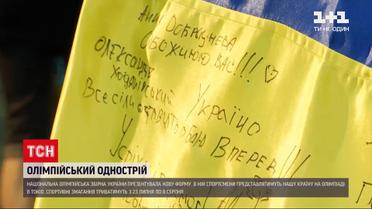 1+1
Анна
ДОБРИДНЕВА
ОБОЖНЮЮ ВАС!!!
ОЛЕКСАНДР
Україно
Вперед
ТСН
ОЛІМПІЙСЬКИЙ ОДНОСТРІЙ
НАЦІОНАЛЬНА ОЛІМПІЙСЬКА ЗБІРНА УКРАЇНИ ПРЕЗЕНТУВАЛА НОВУ ФОРМУ. В НІЙ СПОРТСМЕНИ ПРЕДСТАВЛЯТИМУТЬ НАШУ КРАЇНУ НА ОЛІМПІАДІ
В ТОКІО. СПОРТИВНІ ЗМАГАННЯ ТРИВАТИМУТЬ З 23 ЛИПНЯ ПО 8 СЕРПНЯ